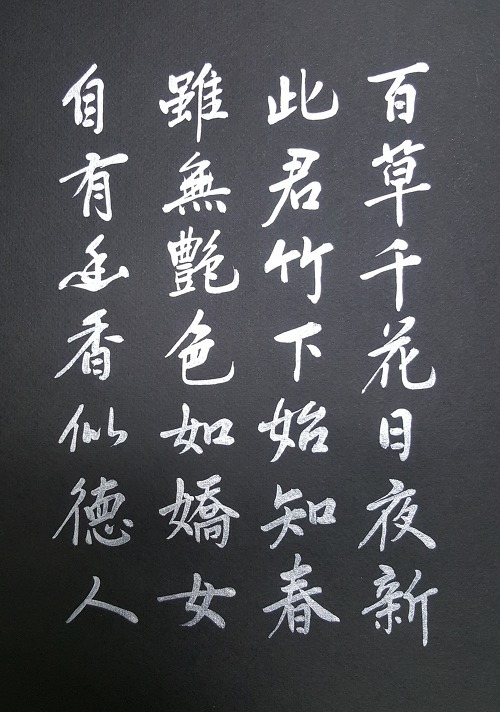 百草千花日夜新
此君竹下始知春
雖無艶色如嬌女
自有幽香似德人